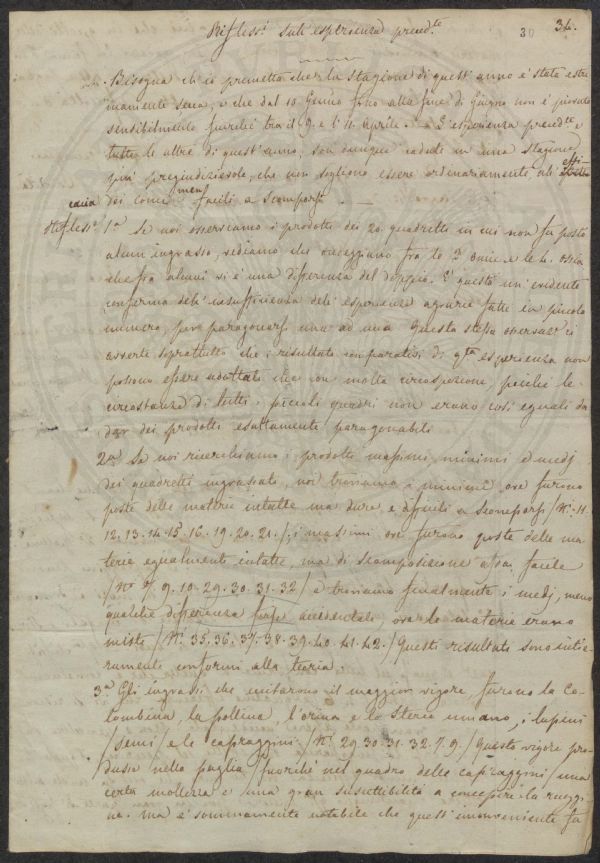 Riflessi sull'esperienza preced.te
30
34.
Bisogna ch'io premetta che la Stagione di quest'anno è stata estre
mamente secca, e che dal 10 Genno fino alla fine di Giugno non è piovuto
sensibilmente fuorché tra il 9 e l'11 Aprile. L'esperienza preced.te e
tutte le altre di quest'anno, son dunque cadute in una stagione
pregiudizievole, che non sogliono essere ordinariamente, all'effi
cacia dei concimi men facili a scomporsi.
Rifless.i 1.a Se noi osserviamo i prodotti dei 20. quadretti in cui non fu posto
alcun ingrasso, vediamo che ondeggiano fra le 3 oncie e le 6. ossia
che fra alcuni vi è una differenza del doppio. È questa un'evidente
conferma dell'insufficienza dell'esperienze agrarie fatte in piccolo
numero, per paragonarsi una ad una. Questa stessa osservaz.e ci
avverte soprattutto che i risultati comparativi di q.ta esperienza non
possono essere adottati che con molta circospezione, poiché le
circostanze di tutti i piccoli quadri non erano così eguali da
dar dei prodotti esattamente paragonabili.
2.a Se noi ricerchiamo i prodotti massimi, minimi e medj
dei quadretti ingrassati, noi troviamo i minimi ove furono
poste delle materie intatte ma dure e difficili a scomporsi /N.i 11.
12. 13. 14. 15. 16. 19. 20. 21./; i massimi ove furono poste delle ma
terie egualmente intatte, ma di scomposizione assai facile
/N.i 7. 9. 10. 29. 30. 31. 32/ e troviamo finalmente i medj, meno
qualche differenza forse accidentale, ove le materie erano
miste /N.i 35. 36. 37. 38. 39. 40. 41. 42./ Questi risultati sono intie
ramente conformi alla teoria.
3.a Gli ingrassi che eccitarono il maggior vigore furono la Co
lombina, la pollina, l'orina e lo Sterco umano, i lupini
/semi/ e le capraggini /N.i 29. 30. 31. 32. 7. 9./ Questo vigore pro
dusse nella paglia /fuorché nel quadro delle capraggini/ una
certa mollezza e una gran suscettibilità a concepire la ruggi
ne. Ma è sommamente notabile che quest'inconveniente fu